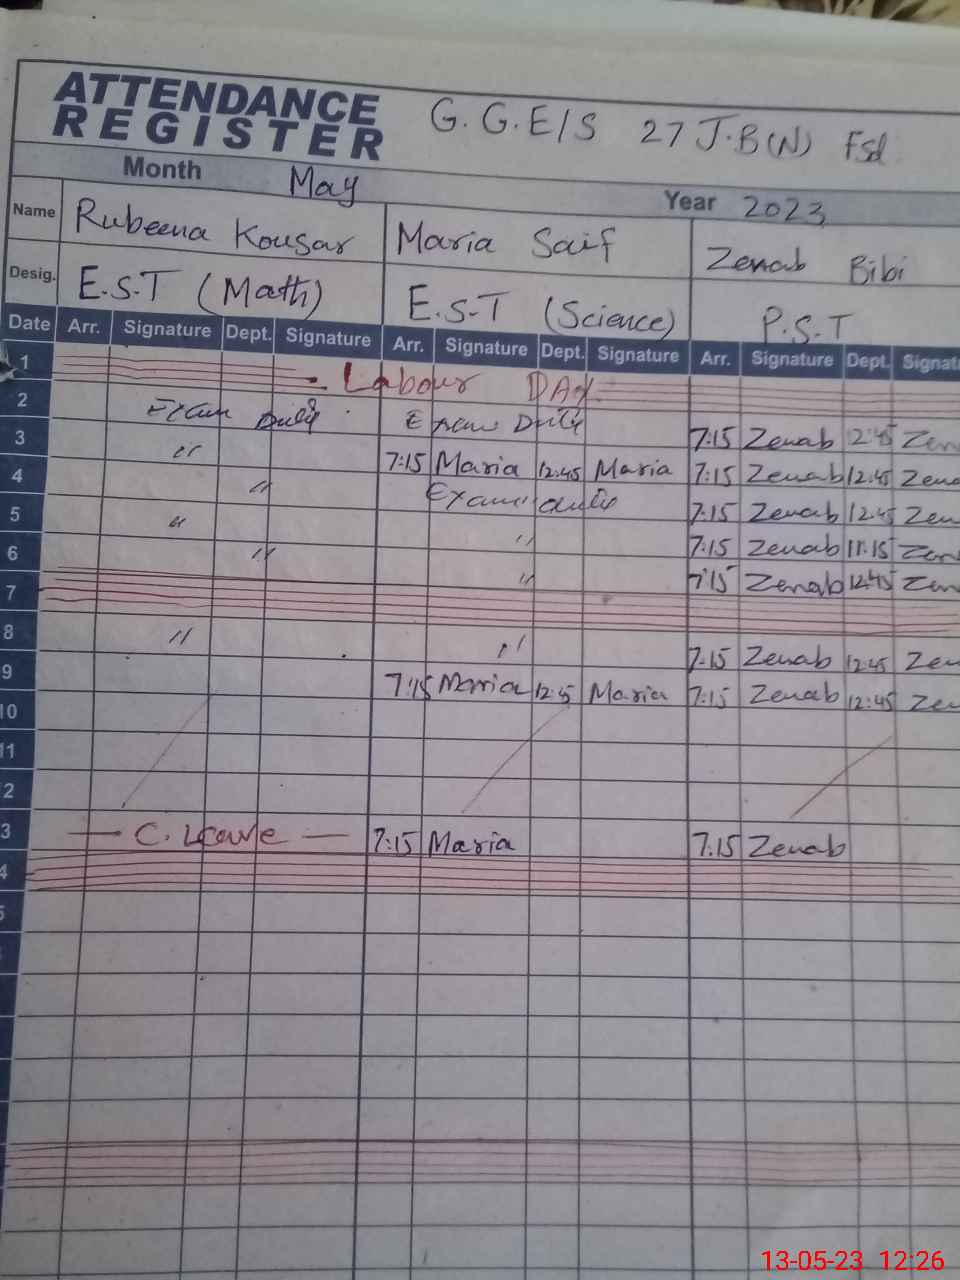 ATTENDANCE
REGISTER
G.G.E/S 27 J.B(N) Fsd
Month May Year 2023
Name Rubeena Kousar Maria Saif Zenab Bibi
Desig. E.S.T (Math) E.S.T (Science) P.S.T
Date Arr. Signature Dept. Signature Arr. Signature Dept. Signature Arr. Signature Dept. Signat
1 Labour DAy
2 Exam Duty Exam Duty 7:15 Zenab 12:45 Zen
3 " 7:15 Maria 12:45 Maria 7:15 Zenab 12:45 Zena
4 " Exam duty 7:15 Zenab 12:45 Zen
5 " " 7:15 Zenab 11:15 Zen
6 " " 7:15 Zenab 12:45 Zen
7
8 " " 7:15 Zenab 12:45 Zen
9 7:15 Maria 12:45 Maria 7:15 Zenab 12:45 Zen
10
11
2
3 — C. Leave — 7:15 Maria 7:15 Zenab
4
5
13-05-23 12:26